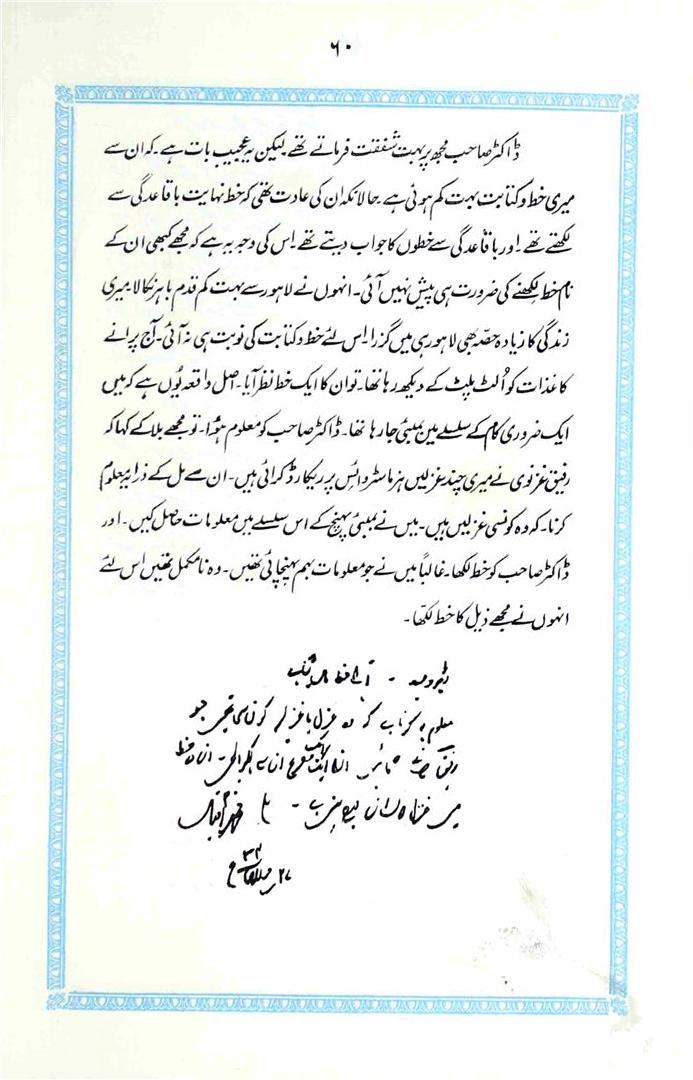 ۶۰
ڈاکٹر صاحب مجھ پر بہت شفقت فرماتے تھے لیکن یہ عجیب بات ہے۔ کہ ان سے
میری خط و کتابت بہت کم ہوئی ہے۔ حالانکہ ان کی عادت تھی کہ خط نہایت باقاعدگی سے
لکھتے تھے۔ اور باقاعدگی سے خطوں کا جواب دیتے تھے۔ اس کی وجہ یہ ہے کہ مجھے کبھی ان کے
نام خط لکھنے کی ضرورت ہی پیش نہیں آئی۔ انہوں نے لاہور سے بہت کم قدم باہر نکالا۔ میری
زندگی کا زیادہ حصہ بھی لاہور ہی میں گزرا۔ اس لئے خط و کتابت کی نوبت ہی نہ آئی۔ آج پرانے
کاغذات کو اُلٹ پلٹ کے دیکھ رہا تھا۔ تو ان کا ایک خط نظر آیا۔ اصل واقعہ یُوں ہے کہ میں
ایک ضروری کام کے سلسلے میں بمبئی جا رہا تھا۔ ڈاکٹر صاحب کو معلوم ہوُا۔ تو مجھے بلا کے کہا کہ
رفیق غزنوی نے میری چند غزلیں ہز ماسٹر وائس پر ریکارڈ کرائی ہیں۔ ان سے مل کے ذرا یہ معلوم
کرنا۔ کہ وہ کونسی غزلیں ہیں۔ میں نے بمبئی پہنچ کے اس سلسلے میں معلومات حاصل کیں۔ اور
ڈاکٹر صاحب کو خط لکھا۔ غالباً میں نے جو معلومات بہم پہنچائی تھیں۔ وہ نامکمل تھیں اس لئے
انہوں نے مجھے ذیل کا خط لکھا۔
معلوم یہ کرنا ہے کہ وہ غزل یا غزلیں کونسی تھیں جو
محمد اقبال
۲۷
۳۴